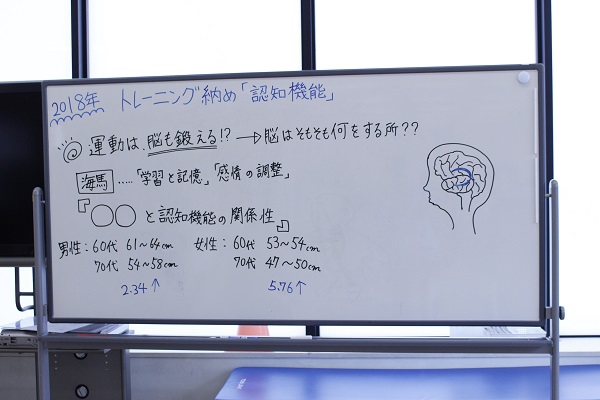 2018年 トレーニング納め「認知機能」
◎ 運動は、脳も鍛える!? →脳はそもそも何をする所??
海馬 ‥‥‥「学習と記憶」「感情の調整」
『○○と認知機能の関係性』
男性：60代 61～64cm 女性：60代 53～54cm
70代 54～58cm 70代 47～50cm
2.34↑ 5.76↑